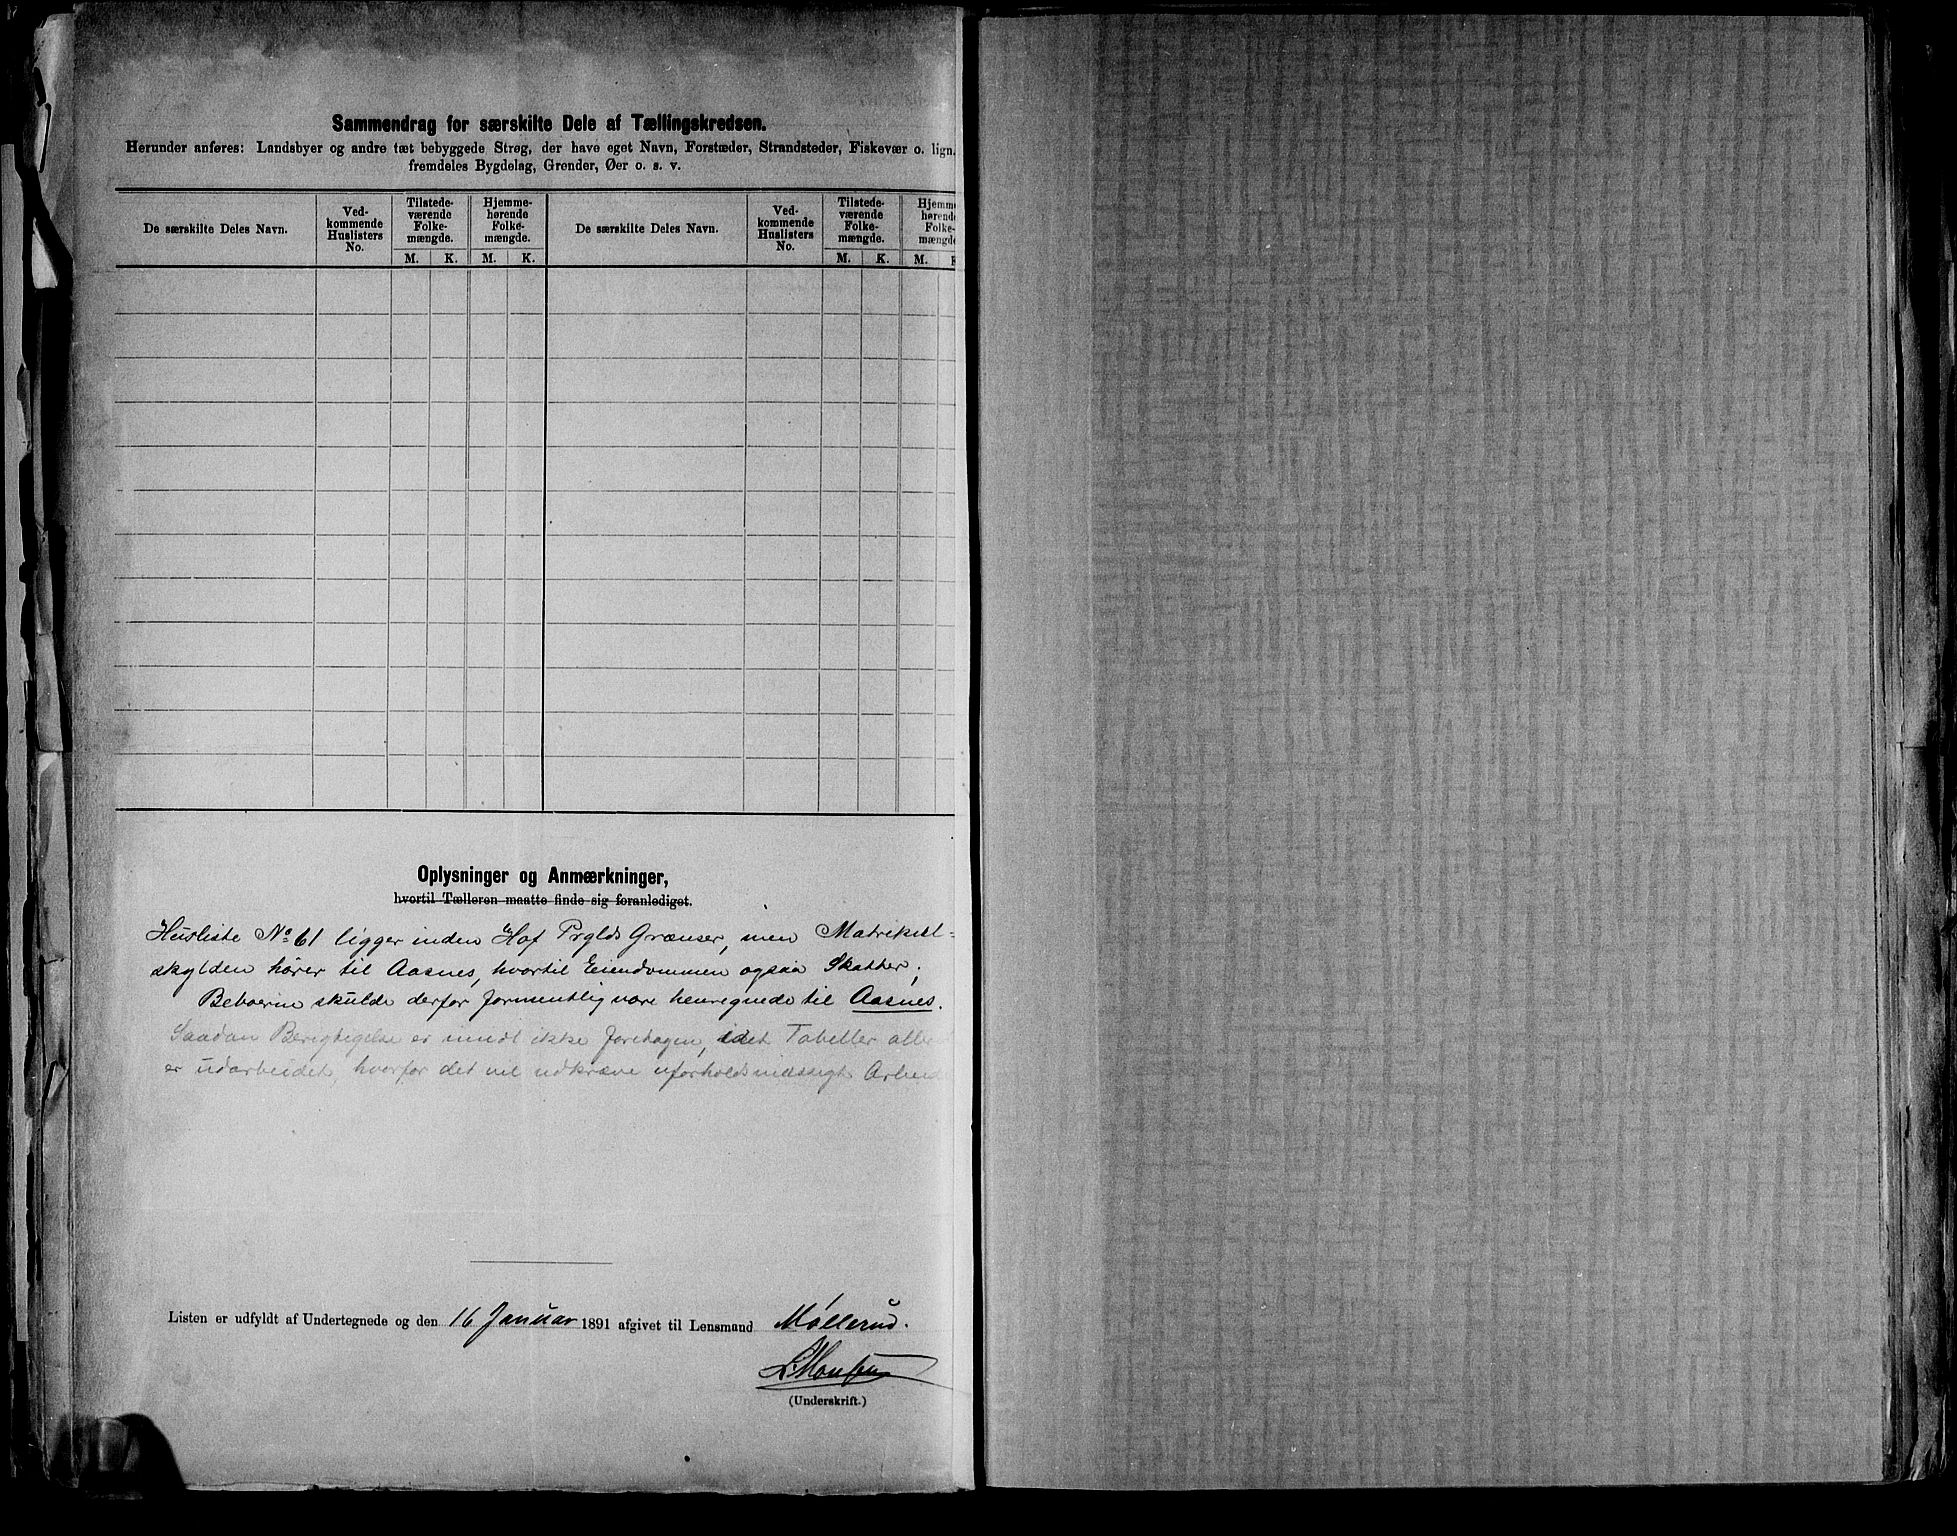 Sammendrag for særskilte Dele af Tællingskredsen.
Herunder anføres: Landsbyer og andre tæt bebyggede Strøg, der have eget Navn, Forstæder, Strandsteder, Fiskevær o. lign.
fremdeles Bygdelag, Grender, Øer o. s. v.
De særskilte Deles Navn. Ved-kommende Huslisters No. Tilstede-værende Folke-mængde. Hjemme-hørende Folke-mængde. De særskilte Deles Navn. Ved-kommende Huslisters No. Tilstede-værende Folke-mængde. Hjemme-hørende Folke-mængde
M. K. M. K. M. K. M. K
Oplysninger og Anmærkninger,
hvortil Tælleren maatte finde sig foranlediget.
Husliste No 61 ligger inden Hof Prglds Grænser, men Matrikul-
skylden hører til Aasnes, hvortil Eiendommen ogsaa Skatter;
Beboerne skulde derfor formentlig være henregnede til Aasnes.
Saadan Berigtigelse er imidt ikke foretagen, idet Tabeller
er udarbeidet, hvorfor det vil udkræve uforholdsmæssigt
Listen er udfyldt af Undertegnede og den 16 Januar 1891 afgivet til Lensmand Møllerud.
(Underskrift.)